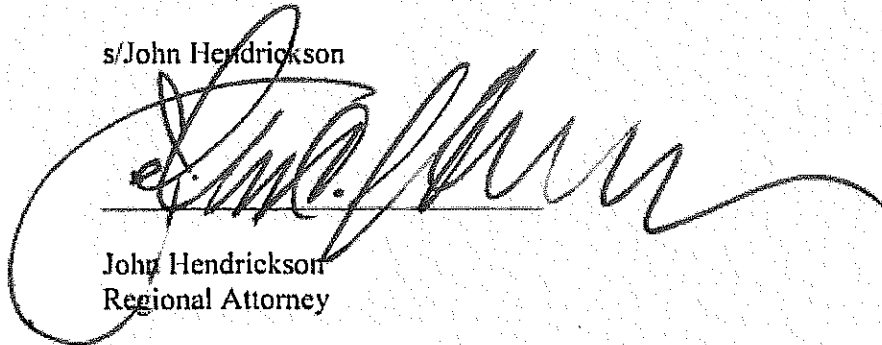 s/John Hendrickson
John Hendrickson
Regional Attorney